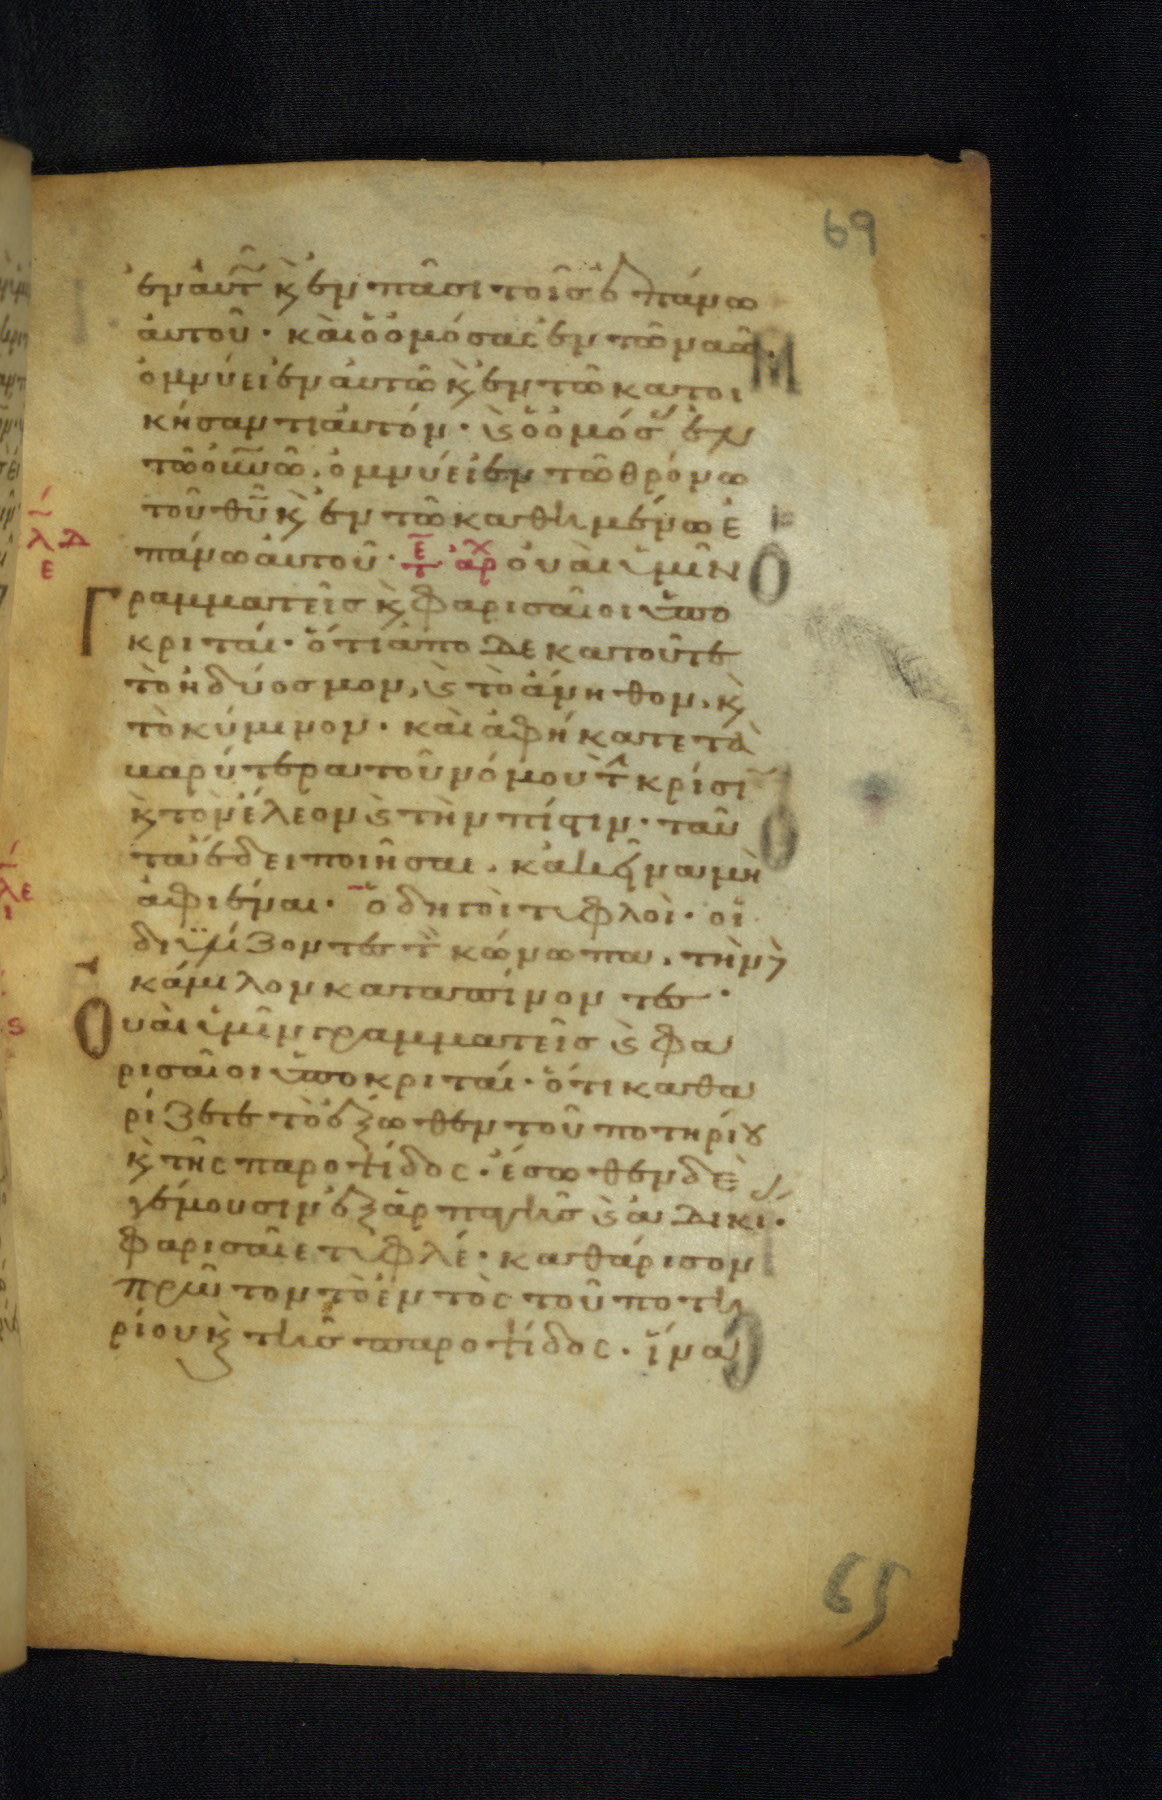 69
ἐν ἀυτῶ κ̀ ἐν πᾶσι τοῖς ἐπάνω
ἀυτοῦ · κὰι ὁ ὀμόσας ἐν τῶ ναῶ ·
ὀμνύει ἐν ἀυτῶ κ̀ ἐν τῶ κατοι
κήσαντι ἀυτόν · ϗ ὁ ὀμόσ ἐν
τῶ ὀυνῶ · ὀμνύει ἐν τῶ θρόνω
τοῦ θυ κ̀ ἐν τῶ καθημένω ἐ
πάνω ἀυτοῦ · ὀυὰι ὑμῖν
Γραμματεῖς κ̀ φαρισαῖοι ὑπο
κριταί · ὅτι ἀποδεκατοῦτε
τὸ ἡδύοσμον, ϗ τὸ ἄνηθον, κ̀
τὸ κύμινον · κὰι ἀφήκατε τὰ
βαρύτερα τοῦ νόμου τ κρίσι
κ̀ τὸν ἔλεον ϗ τὴν πίστιν · ταῦ
τα ἔδει ποιῆσαι · κἀκεῖνα μὴ
ἀφιέναι · ὁδηγὸι τυφλὸι · οἱ
διϋλίζοντες τ κώνωπα · τὴν δ
κάμηλον καταπίνοντες ·
Ουὰι ὑμῖν γραμματεῖς ϗ φα
ρισαῖοι ὑποκριταί · ὅτι καθα
ρίζετε τὸ ἔξωθεν τοῦ ποτηρίου
κ̀ τῆς παροψίδος · ἔσωθεν δὲ
γέμουσιν ἐξ ἁρπαγῆς ϗ ἀδικί ·
φαρισαῖε τυφλέ · καθάρισον
πρῶτον τὸ ἐντὸς τοῦ ποτη
ρίου κ̀ τῆς παροψίδος · ἵνα
65